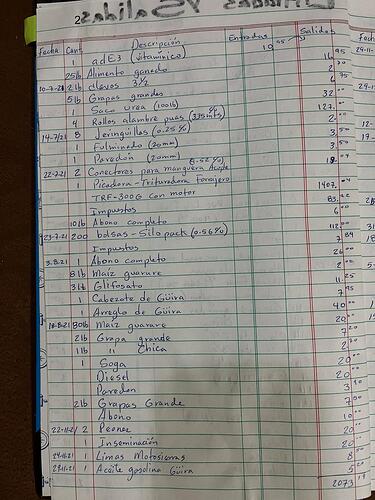 Entradas y Salidas
2
Fecha Cant. Descripción Entradas Salidas Fech
1 ad E3 (vitaminico) 19.95
25lb Alimento ganado 16.95
10-7-21 2lb clavos 3½
5lb Grapas grandes 6.95
1 Saco urea (100lb) 32.00
4 Rollos alambre puas (335mts) 127.00
14-7/21 8 Jeringuillas (0.25%) 2.00
1 Fulminado (20mm) 3.50
1 Paredon (20mm) 3.50
22-7-21 2 Conectores para manguera Acople
1 Picadora-Trituradora forrajero
TRF-300G con motor 1407.
Impuestos
10lb Abono completo 6.00
23-7-21 200 bolsas-Silo pack (0.56%) 112.00
Impuestos 7.84
3.8.21 1 Abono completo 26.00
8lb Maiz guarare 2.00
3lt Glifosato 11.25
1 Cabezote de Güira 7.95
1 Arreglo de Güira 40.00
18-8-21 80lb Maiz guarare 20.00
2lb Grapa grande 7.20
11lb " Chica 2
1 Soga 20.00
Diesel 20.00
Paredon 3.50
2lb Grapas Grande 7.50
Abono 10.00
22-11-21 2 Peones 20.00
1 Inseminación 20
24-11-21 1 Limas Motosierras 8.00
29-11-21 1 Aceite gasolina Güira 5.20
2073.19